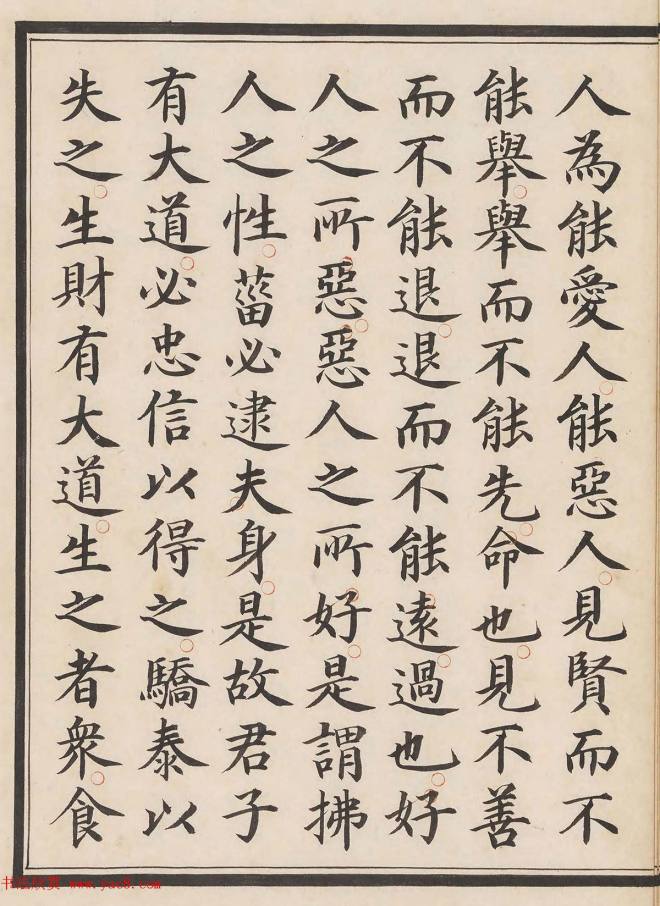 人為能愛人能惡人見賢而不
能舉舉而不能先命也見不善
而不能退退而不能遠過也好
人之所惡惡人之所好是謂拂
人之性菑必逮夫身是故君子
有大道必忠信以得之驕泰以
失之生財有大道生之者衆食
书法欣赏 www.yac8.com